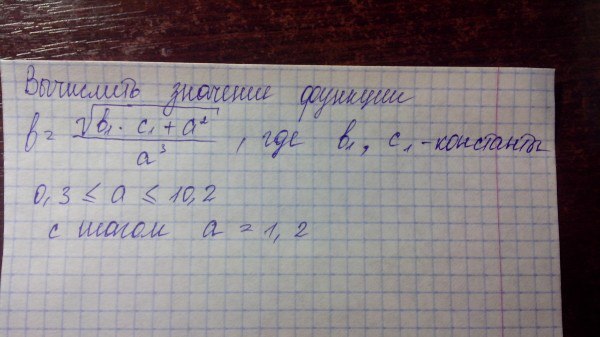 Вычислить значение функции
b = √(b₁ · c₁ + a²) / a³ , где b₁, c₁ - константы
0,3 ≤ a ≤ 10,2
с шагом a = 1,2